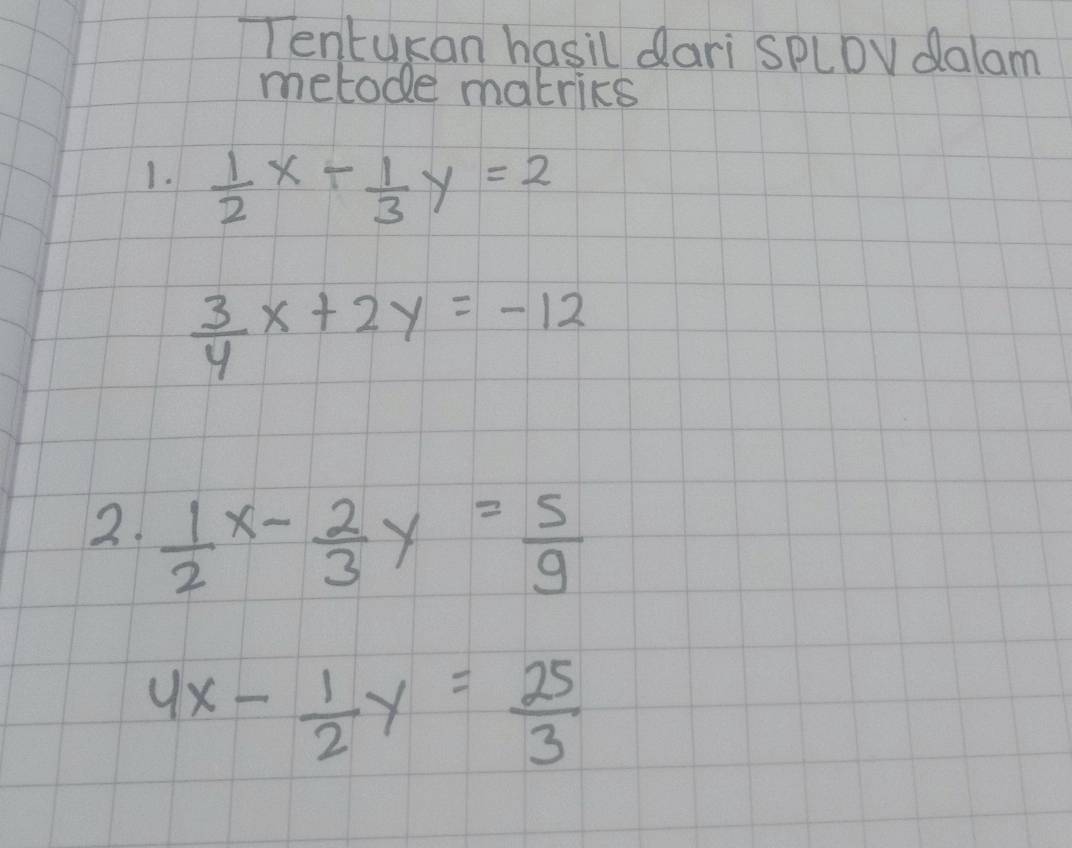 Tentukan hasil dari SPLDV dalam
metode matriks
1. 1/2 x - 1/3 y = 2
3/4 x + 2y = -12
2. 1/2 x - 2/3 y = 5/9
4x - 1/2 y = 25/3